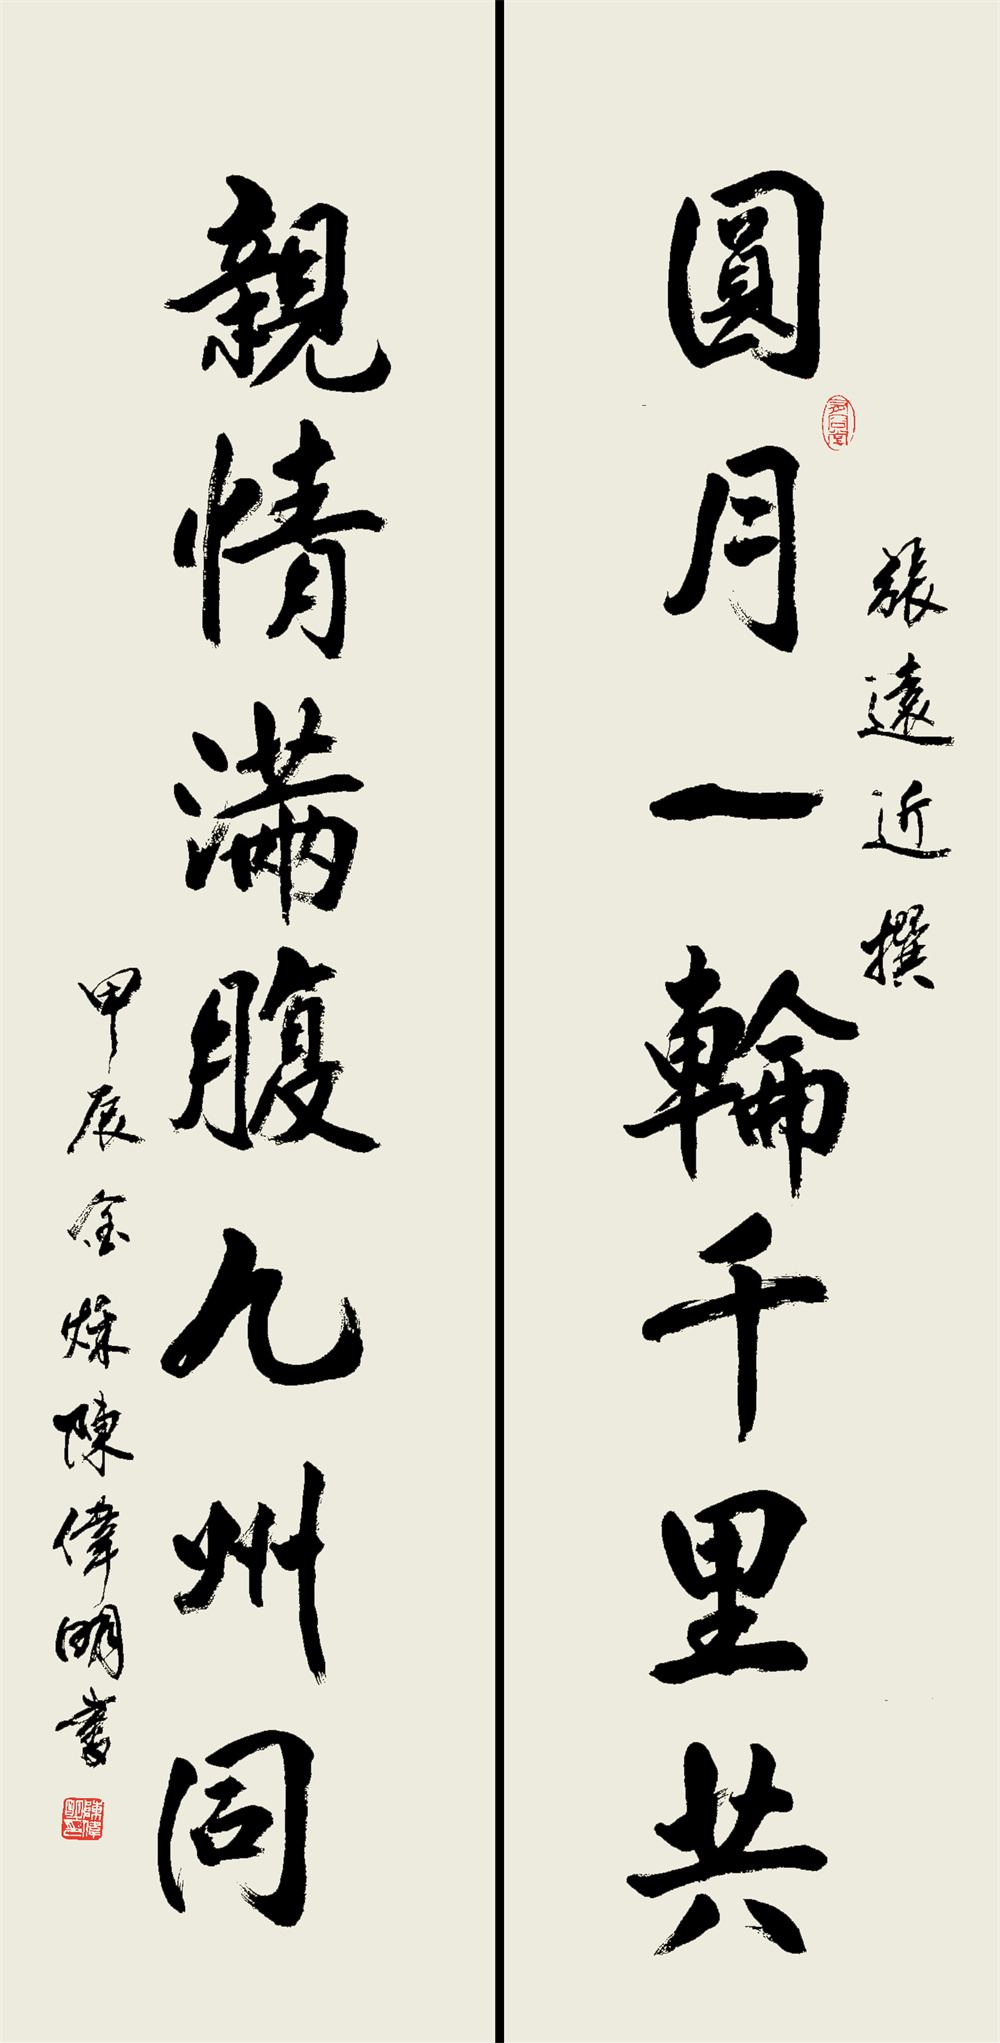 張遠近撰
圓月一輪千里共
親情滿腹九州同
甲辰金秌陳偉明書